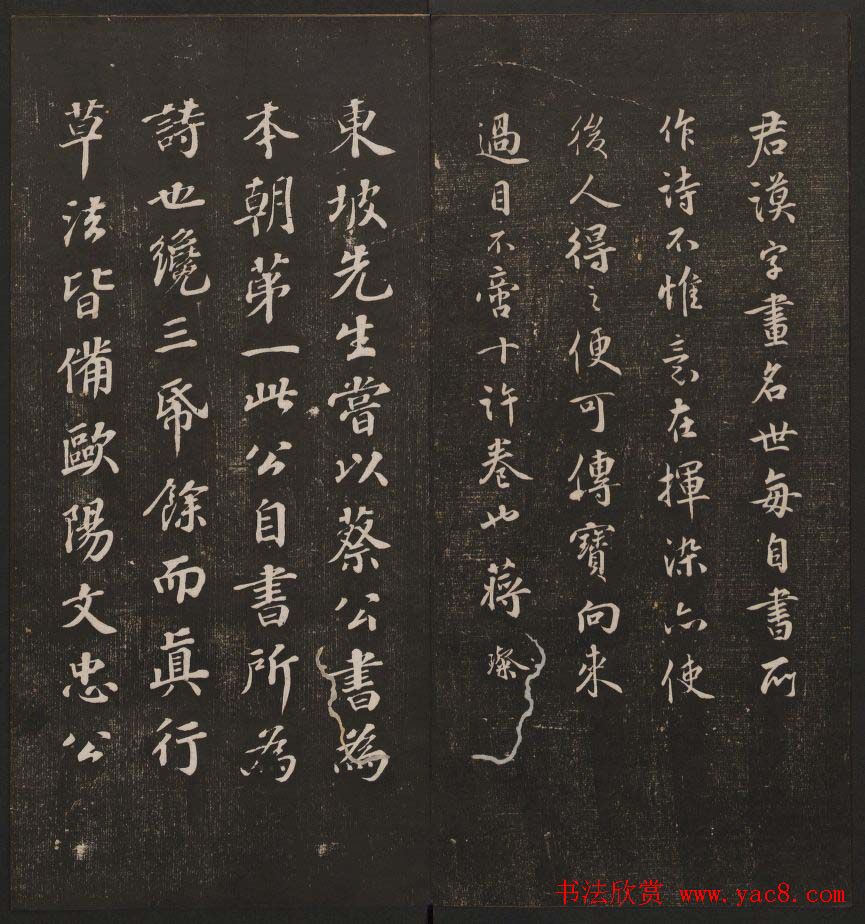 君謨字畫名世每自書所
作詩不惟意在揮染亦使
後人得之便可傳寶向來
過目不啻十許卷也蔣璨
東坡先生嘗以蔡公書為
本朝苐一此公自書所為
詩也纔三帋餘而真行
草法皆備歐陽文忠公
书法欣赏 www.yac8.com